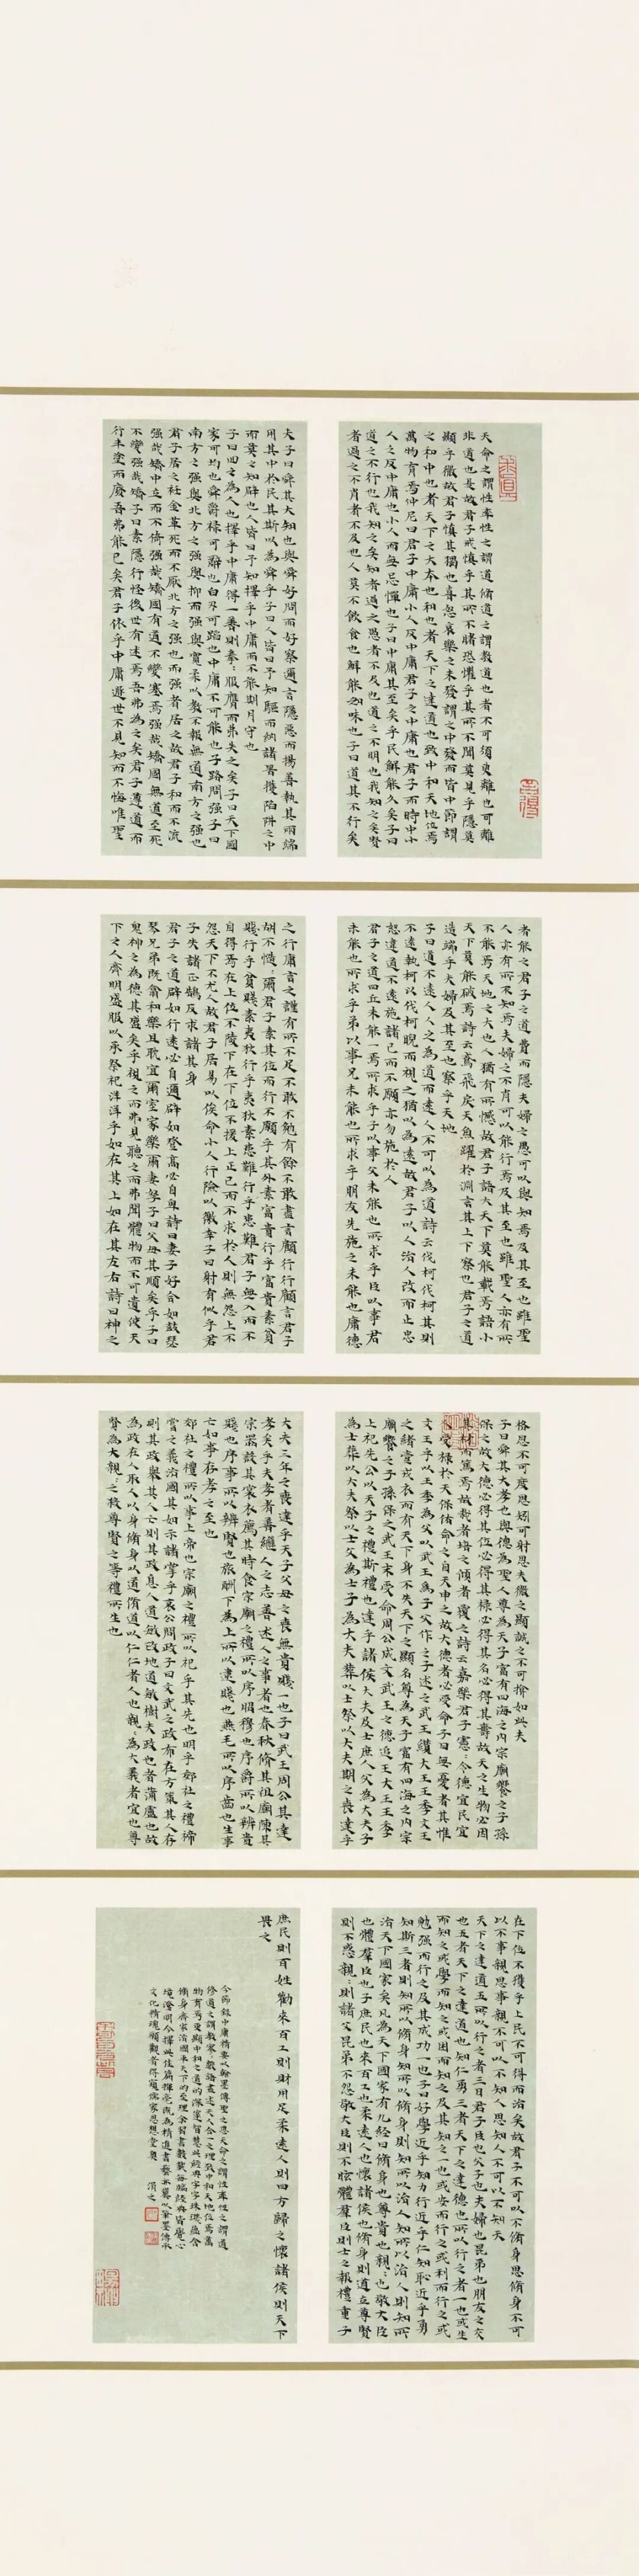 天命之謂性率性之謂道脩道之謂教道也者不可須臾離也可離
非道也是故君子戒慎乎其所不睹恐懼乎其所不聞莫見乎隱莫
顯乎微故君子慎其獨也喜怒哀樂之未發謂之中發而皆中節謂
之和中也者天下之大本也和也者天下之達道也致中和天地位焉
萬物育焉仲尼曰君子中庸小人反中庸君子之中庸也君子而時中小
人之反中庸也小人而無忌憚也子曰中庸其至矣乎民鮮能久矣子曰
道之不行也我知之矣知者過之愚者不及也道之不明也我知之矣賢
者過之不肖者不及也人莫不飲食也鮮能知味也子曰道其不行矣
夫子曰舜其大知也與舜好問而好察邇言隱惡而揚善執其兩端
用其中於民其斯以為舜乎子曰人皆曰予知驅而納諸罟擭陷阱之中
而莫之知辟也人皆曰予知擇乎中庸而不能期月守也
子曰回之為人也擇乎中庸得一善則拳:服膺而弗失之矣子曰天下國
家可均也爵祿可辭也白刃可蹈也中庸不可能也子路問强子曰
南方之强與北方之强與抑而强與寬柔以教不報無道南方之强也
君子居之衽金革死而不厭北方之强也而强者居之故君子和而不流
强哉矯中立而不倚强哉矯國有道不變塞焉强哉矯國無道至死
不變强哉矯子曰素隱行怪後世有述焉吾弗為之矣君子遵道而
行半塗而廢吾弗能已矣君子依乎中庸遯世不見知而不悔唯聖
者能之君子之道費而隱夫婦之愚可以與知焉及其至也雖聖
人亦有所不知焉夫婦之不肖可以能行焉及其至也雖聖人亦有所
不能焉天地之大也人猶有所憾故君子語大天下莫能載焉語小
天下莫能破焉詩云鳶飛戾天魚躍於淵言其上下察也君子之道
造端乎夫婦及其至也察乎天地
子曰道不遠人人之為道而遠人不可以為道詩云伐柯伐柯其則
不遠執柯以伐柯睨而視之猶以為遠故君子以人治人改而止忠
恕違道不遠施諸己而不願亦勿施於人
君子之道四丘未能一焉所求乎子以事父未能也所求乎臣以事君
未能也所求乎弟以事兄未能也所求乎朋友先施之未能也庸德
之行庸言之謹有所不足不敢不勉有餘不敢盡言顧行行顧言君子
胡不慥:爾君子素其位而行不願乎其外素富貴行乎富貴素貧
賤行乎貧賤素夷狄行乎夷狄素患難行乎患難君子無入而不
自得焉在上位不陵下在下位不援上正己而不求於人則無怨上不
怨天下不尤人故君子居易以俟命小人行險以徼幸子曰射有似乎君
子失諸正鵠反求諸其身
君子之道辟如行遠必自邇辟如登高必自卑詩曰妻子好合如鼓瑟
琴兄弟既翕和樂且耽宜爾室家樂爾妻孥子曰父母其順矣乎子曰
鬼神之為德其盛矣乎視之而弗見聽之而弗聞體物而不可遺使天
下之人齊明盛服以承祭祀洋洋乎如在其上如在其左右詩曰神之
格思不可度思矧可射思夫微之顯誠之不可揜如此夫
子曰舜其大孝也與德為聖人尊為天子富有四海之内宗廟饗之子孫
保之故大德必得其位必得其祿必得其名必得其壽故天之生物必因
其材而篤焉故栽者培之傾者覆之詩云嘉樂君子憲:令德宜民宜
人受祿於天保佑命之自天申之故大德者必受命子曰無憂者其惟
文王乎以王季為父以武王為子父作之子述之武王纘大王王季文王
之緒壹戎衣而有天下身不失天下之顯名尊為天子富有四海之内宗
廟饗之子孫保之武王末受命周公成文武王之德追王大王王季
上祀先公以天子之禮斯禮也達乎諸侯大夫及士庶人父為大夫子
為士葬以大夫祭以士父為士子為大夫葬以士祭以大夫期之喪達乎
大夫三年之喪達乎天子父母之喪無貴賤一也子曰武王周公其達
孝矣乎夫孝者善繼人之志善述人之事者也春秋脩其祖廟陳其
宗器設其裳衣薦其時食宗廟之禮所以序昭穆也序爵所以辨貴
賤也序事所以辨賢也旅酬下為上所以逮賤也燕毛所以序齒也生事
亡如事存孝之至也
郊社之禮所以事上帝也宗廟之禮所以祀乎其先也明乎郊社之禮禘
嘗之義治國其如示諸掌乎哀公問政子曰文武之政布在方策其人存
則其政舉其人亡則其政息人道敏政地道敏樹夫政也者蒲盧也故
為政在人取人以身脩身以道脩道以仁仁者人也親:為大義者宜也尊
賢為大親:之殺尊賢之等禮所生也
在下位不獲乎上民不可得而治矣故君子不可以不脩身思脩身不可
以不事親思事親不可以不知人思知人不可以不知天
天下之達道五所以行之者三曰君子臣也父子也夫婦也昆弟也朋友之交
也五者天下之達道也知仁勇三者天下之達德也所以行之者一也或生
而知之或學而知之或困而知之及其知之一也或安而行之或利而行之或
勉强而行之及其成功一也子曰好學近乎知力行近乎仁知恥近乎勇
知斯三者則知所以脩身知所以脩身則知所以治人知所以治人則知所以
治天下國家矣凡為天下國家有九經曰脩身也尊賢也親:也敬大臣
也體羣臣也子庶民也來百工也柔遠人也懷諸侯也脩身則道立尊賢
則不惑親:則諸父昆弟不怨敬大臣則不眩體羣臣則士之報禮重子
庶民則百姓勸來百工則財用足柔遠人則四方歸之懷諸侯則天下
畏之
今節錄中庸精要以翰墨傳聖之思天命之謂性率性之謂道
修道之謂教寥:數語盡述天人合一之理致中和天地位焉萬
物育焉更顯中和之道的深邃智慧此經典字字珠璣蘊含
脩身齊家治國平天下的至理余習書數載每臨經典皆覺心
境澄明今擇此佳篇揮毫既為精進書藝亦冀以筆墨傳承
文化精魂願觀者得窺儒家思想堂奧